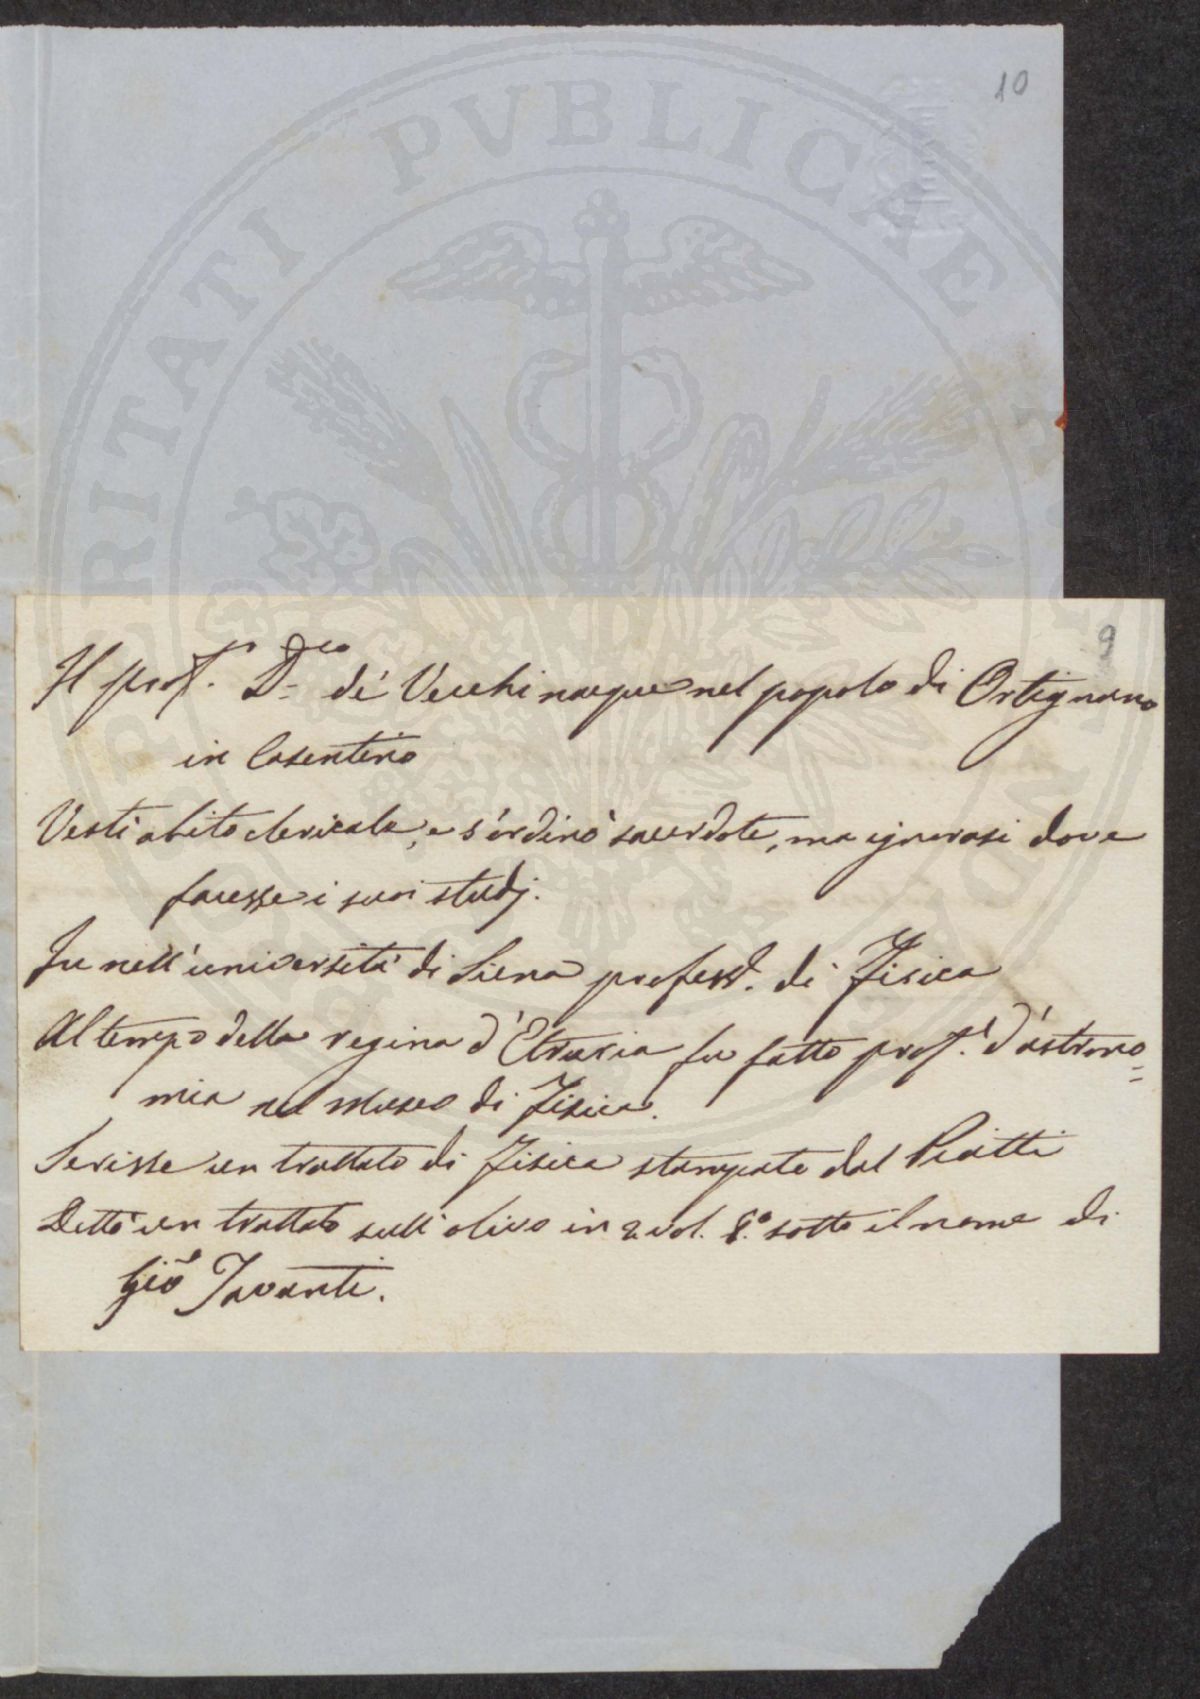 10
9
Il prof. D.co de' Vecchi nacque nel popolo di Ortignano
in Casentino
Vestì abito clericale, e s'ordinò sacerdote, ma ignorasi dove
facesse i suoi studj.
Fu nell'università di Siena profess. di Fisica
Al tempo della regina d'Etruria fu fatto prof. d'astrono=
mia nel Museo di Fisica.
Scrisse un trattato di Fisica stampato dal Piatti
Dettò un trattato sull'olivo in 2 vol. 8.° sotto il nome di
Gio Tavanti.
PROSPERITATI PVBLICAE